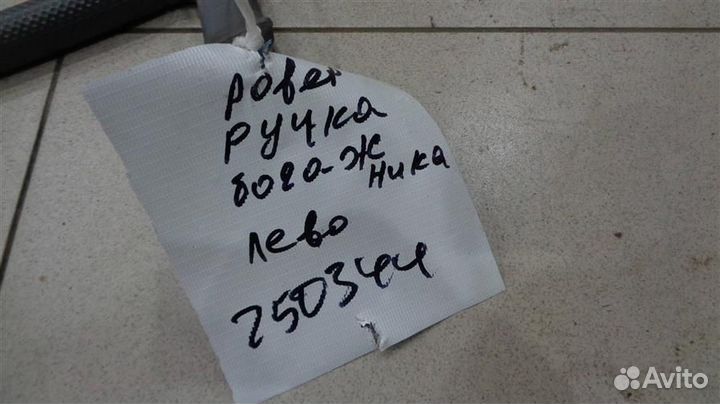 Ровер
ручка
бога-ж
ника
лево
250344
Avito